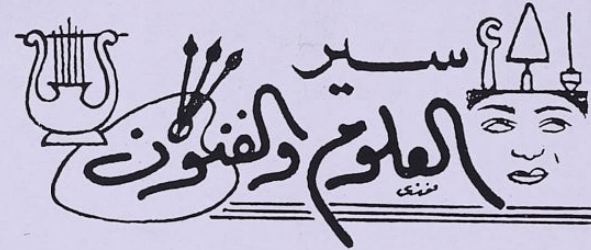 سير
العلوم والفنون